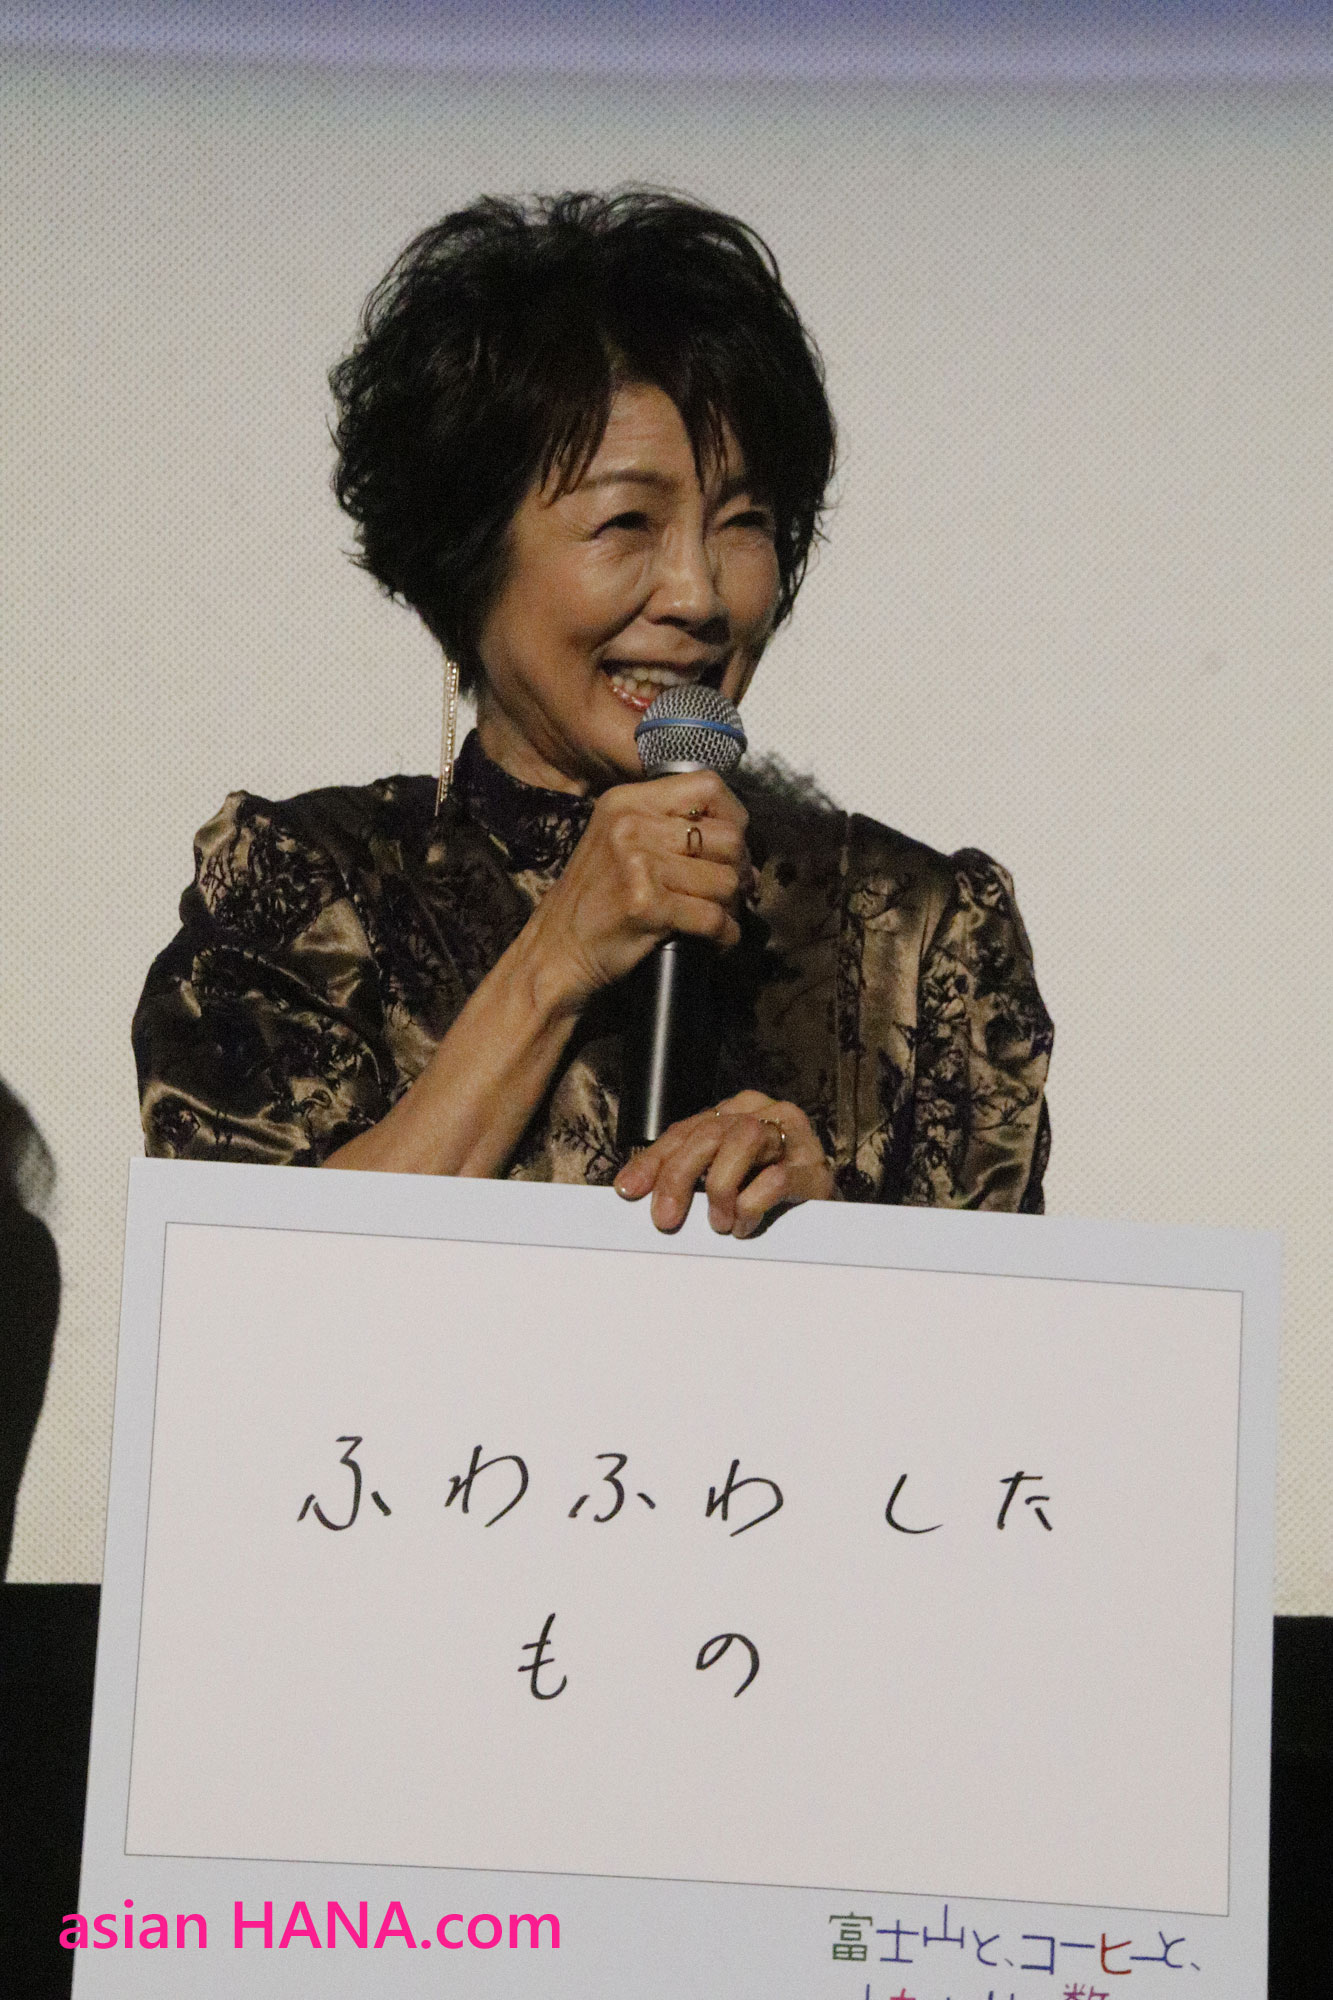 ふわふわした
もの
asian HANA.com
富士山と、コーヒーと、